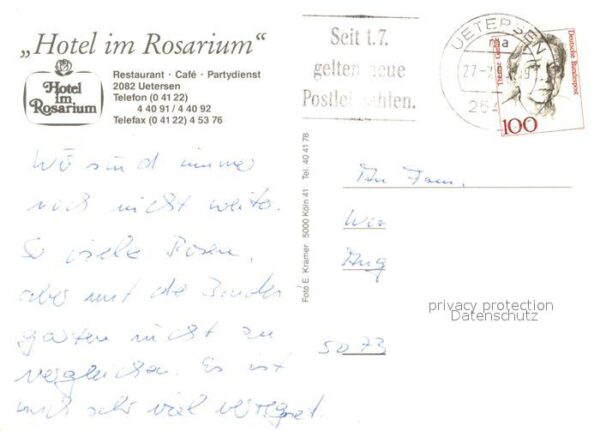 „Hotel im Rosarium“
Hotel
im
Rosarium
Restaurant · Café · Partydienst
2082 Uetersen
Telefon (0 41 22)
4 40 91 / 4 40 92
Telefax (0 41 22) 4 53 76
Seit 1.7.
gelten neue
Postleitzahlen.
UETERSEN
254
Deutsche Bundespost
100
Foto E. Kramer 5000 Köln 41 Tel. 40 41 78
Wir sind immer
noch nicht weiter.
So viele Rosen,
aber mit die Bundes
garten nicht zu
vergleichen. Es ist
auch sehr viel verregnet.
An Fam.
5073
privacy protection
Datenschutz